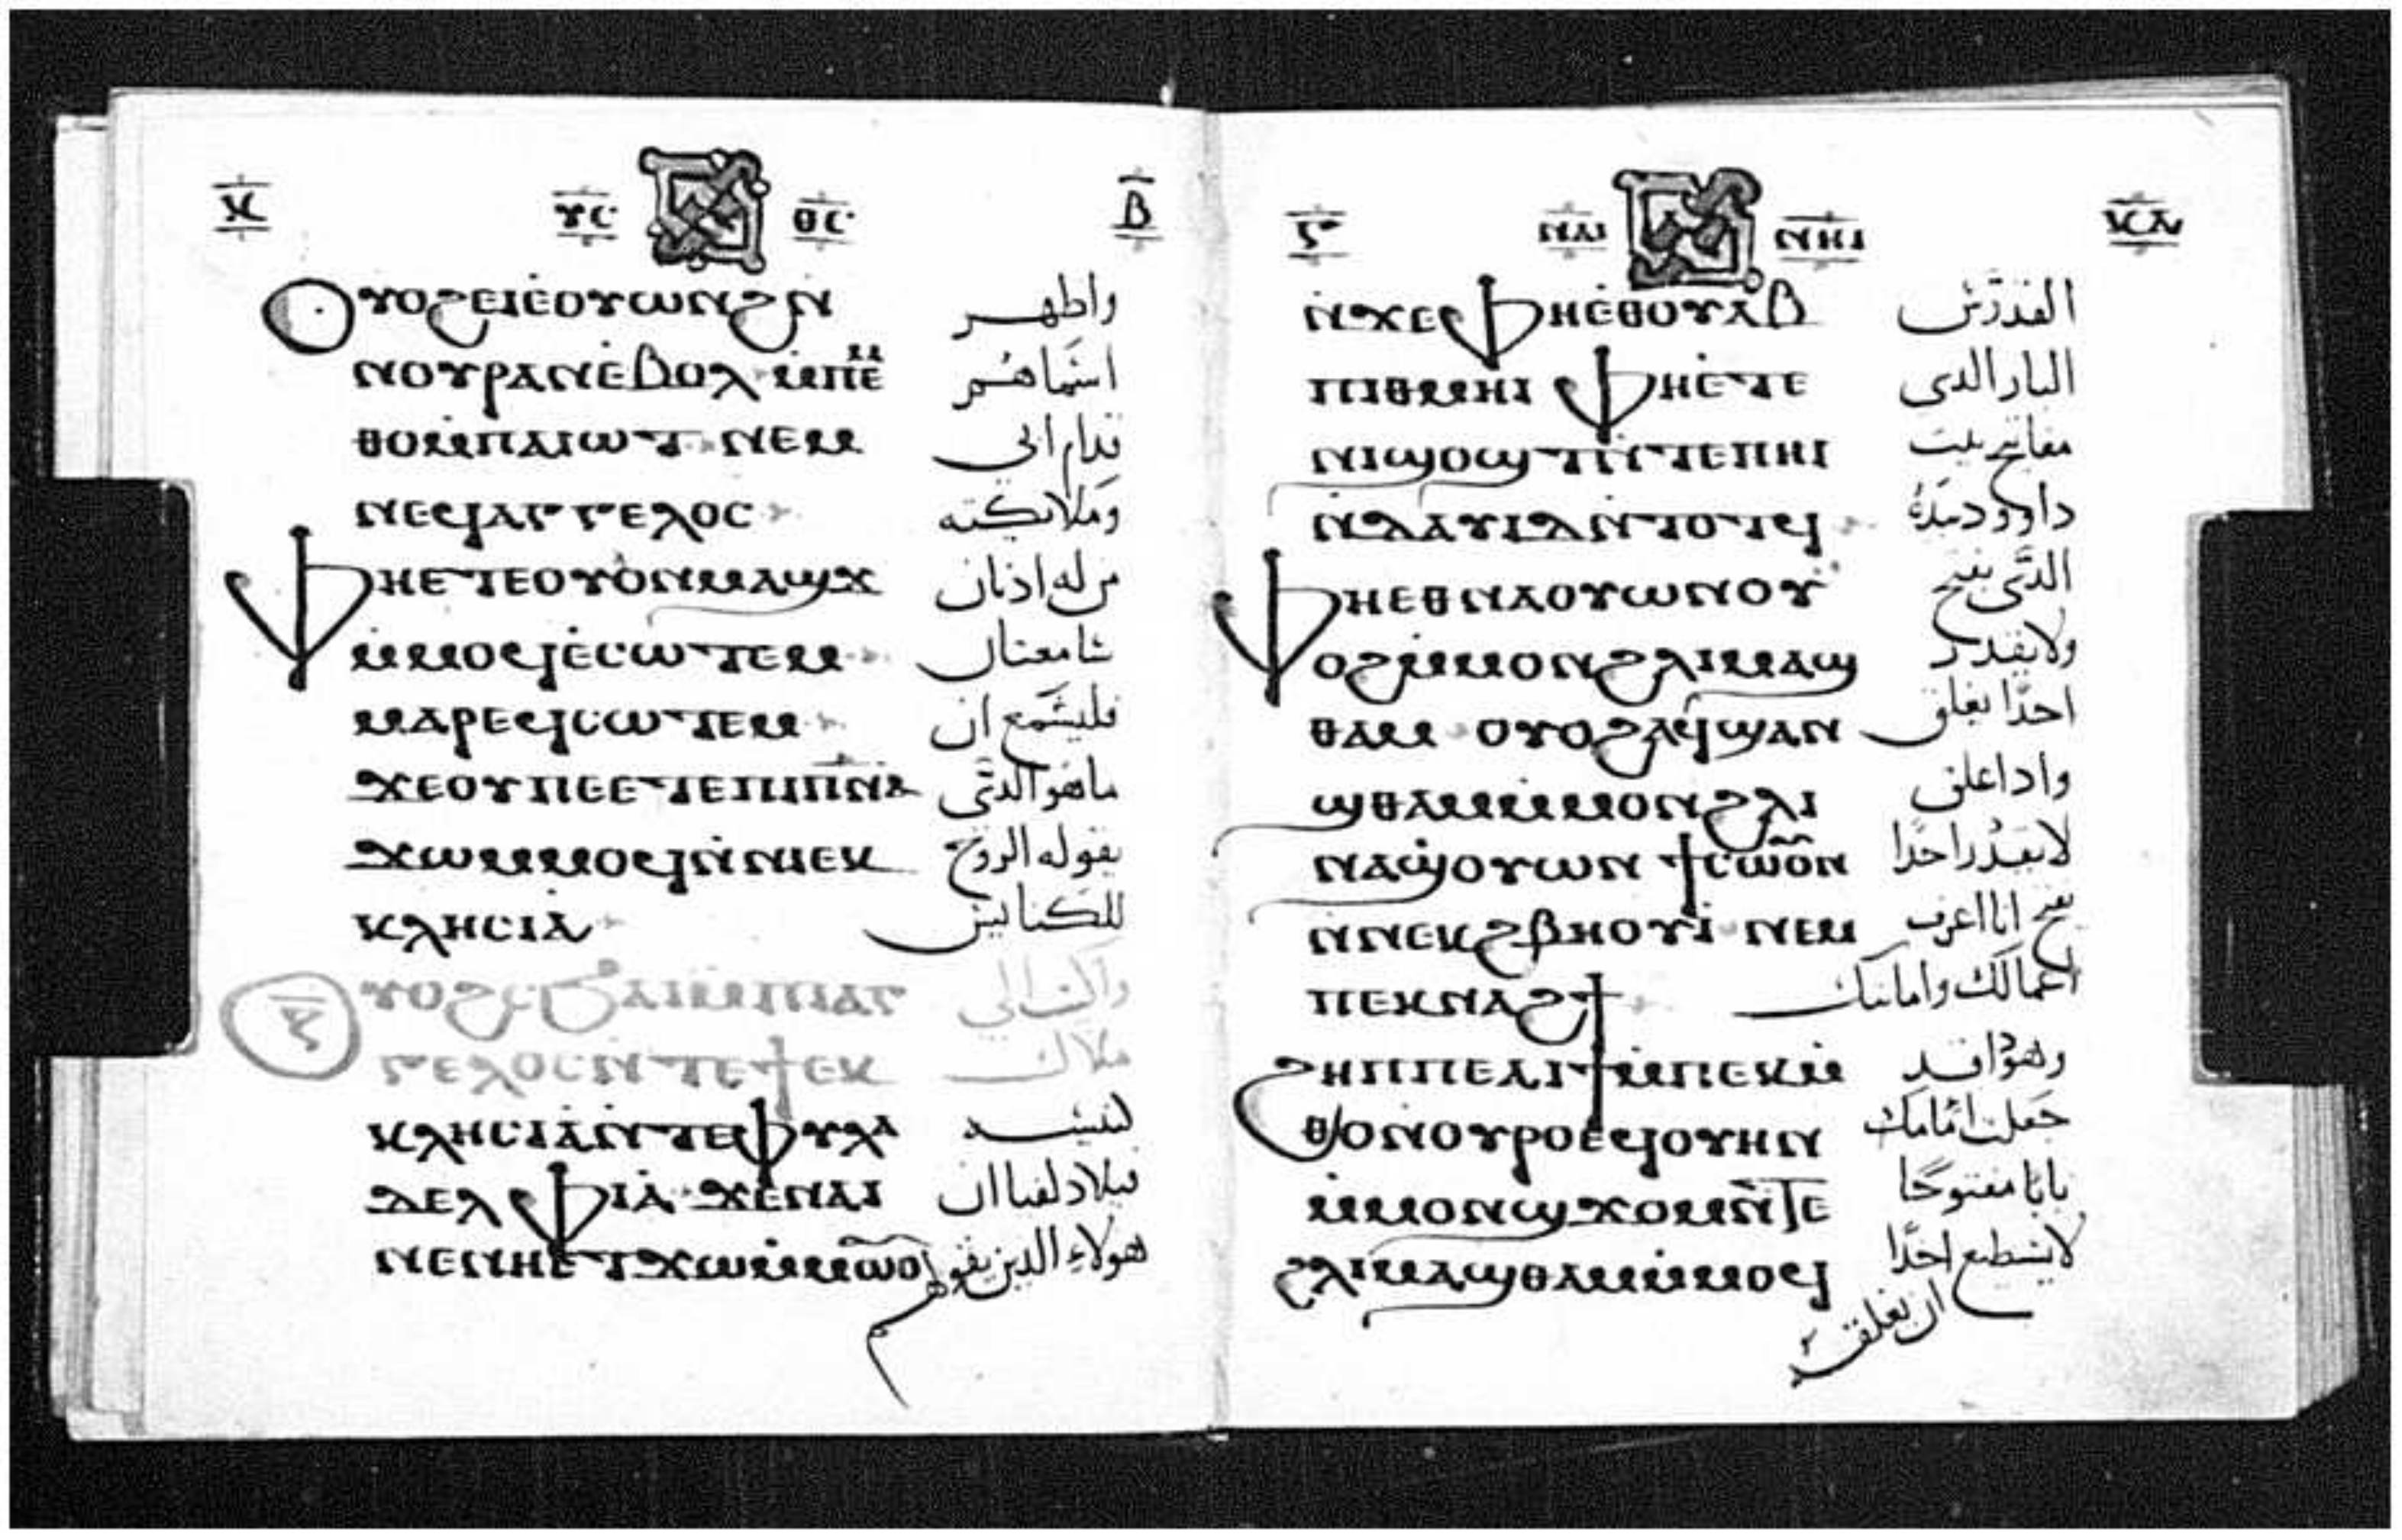 ⲕ ⲩⲥ ⲑⲥ ⲃ
ⲟⲩⲟϩⲉⲓⲉ̀ⲟⲩⲱⲛϩⲛ̀ واظهر
ⲛⲟⲩⲣⲁⲛⲉ̀ⲃⲟⲗ ⲙ̀ⲡⲉ̀ⲙ اسماهم
ⲑⲟⲙ̀ⲡⲁⲓⲱⲧ ⲛⲉⲙ قدام ابي
ⲛⲉϥⲁⲅⲅⲉⲗⲟⲥ وملايكته
ⲫⲏⲉ̀ⲧⲉⲟⲩⲟ̀ⲛⲙⲁϣϫ من له اذنان
ⲙ̀ⲙⲟϥⲉ̀ⲥⲱⲧⲉⲙ سامعتان
ⲙⲁⲣⲉϥⲥⲱⲧⲉⲙ فليسمع ان
ϫⲉⲟⲩⲡⲉⲉ̀ⲧⲉⲡⲓⲡ̅ⲛ̅ⲁ̅ ماهو الدى
ϫⲱⲙ̀ⲙⲟϥⲛ̀ⲛⲓⲉⲕ يقوله الروح
ⲕⲗⲏⲥⲓⲁ للكنايس
ⲟⲩⲟϩⲥϧⲁⲓⲙ̀ⲡⲓⲁⲅ واكتب الي
ⲅⲉⲗⲟⲥⲛ̀ⲧⲉϯⲉⲕ ملاك
ⲕⲗⲏⲥⲓⲁⲛ̀ⲧⲉⲫⲩⲗⲁ كنيسه
ⲇⲉⲗⲫⲓⲁ ϫⲉⲛⲁⲓ فيلادلفيا ان
ⲛⲉⲛⲏⲉ̀ⲧϫⲱⲙ̀ⲙⲱⲟⲩ هولاء الدين يقولهم
ⲋ ⲛⲁⲓ ⲛⲏⲓ ⲕⲁ
ⲛ̀ϫⲉⲫⲏⲉ̀ⲑⲟⲩⲁⲃ القدوس
ⲡⲓⲑⲙⲏⲓ ⲫⲏⲉ̀ⲧⲉ البار الدى
ⲛⲓϣⲟϣⲧⲛ̀ⲧⲉⲡⲏⲓ مفاتيح بيت
ⲛ̀ⲇⲁⲩⲓⲇⲛ̀ⲧⲟⲧϥ داوود بيده
ⲫⲏⲉⲑⲛⲁⲟⲩⲱⲛⲟⲩ الدى يفتح
ⲟϩⲙ̀ⲙⲟⲛϩⲗⲓⲙⲁϣ ولا يقدر
ⲑⲁⲙ ⲟⲩⲟϩⲁϥϣⲁⲛ احدا يغلق
ϣⲑⲁⲙⲙ̀ⲙⲟⲛϩⲗⲓ وادا غلق
ⲛⲁϣⲟⲩⲱⲛ ϯⲥⲱⲟⲩⲛ لا يقدر احدا
ⲛ̀ⲛⲉⲕϩⲃⲏⲟⲩⲓ̀ ⲛⲉⲙ يفتح انا اعرف
ⲡⲉⲕⲛⲁϩϯ اعمالك وامانتك
ϩⲏⲡⲡⲉⲁⲓϯⲙ̀ⲡⲉⲕⲙ̀ وهودا قد
ⲑⲟⲛⲟⲩⲣⲟⲉϥⲟⲩⲏⲛ جعلت امامك
ⲙ̀ⲙⲟⲛϣϫⲟⲙⲛ̀ⲧⲉ بابا مفتوحا
ϩⲗⲓⲙⲁϣⲑⲁⲙⲙ̀ⲙⲟϥ لا يسطيع احدا
ان يغلقه